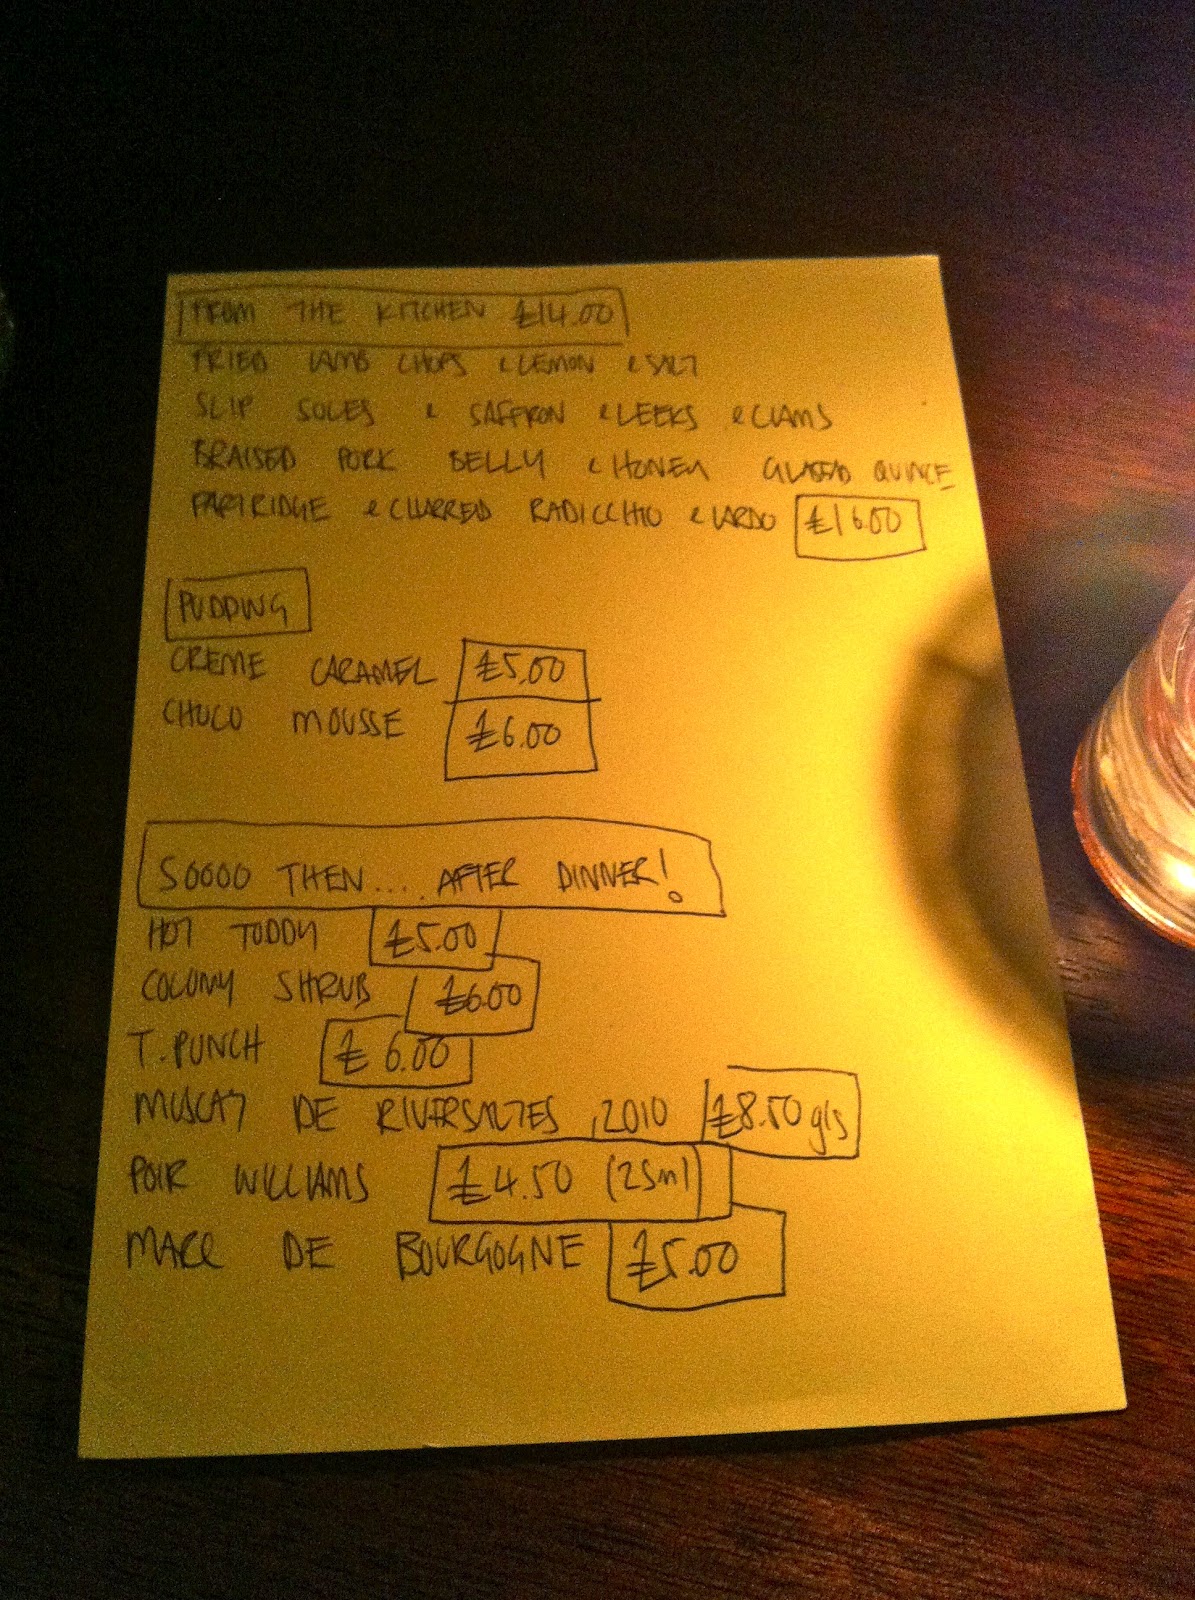 FROM THE KITCHEN £14.00
FRIED LAMB CHOPS & LEMON & SALT
SLIP SOLES & SAFFRON & LEEKS & CLAMS
BRAISED PORK BELLY & HONEY GLAZED QUINCE
PARTRIDGE & CHARRED RADICCHIO & LARDO £16.00
PUDDING
CREME CARAMEL £5.00
CHOCO MOUSSE £6.00
SOOOO THEN.... AFTER DINNER!
HOT TODDY £5.00
COLONY SHRUB £6.00
T. PUNCH £6.00
MUSCAT DE RIVERSALTES, 2010 £8.50 gls
POIR WILLIAMS £4.50 (25ml)
MARC DE BOURGOGNE £5.00